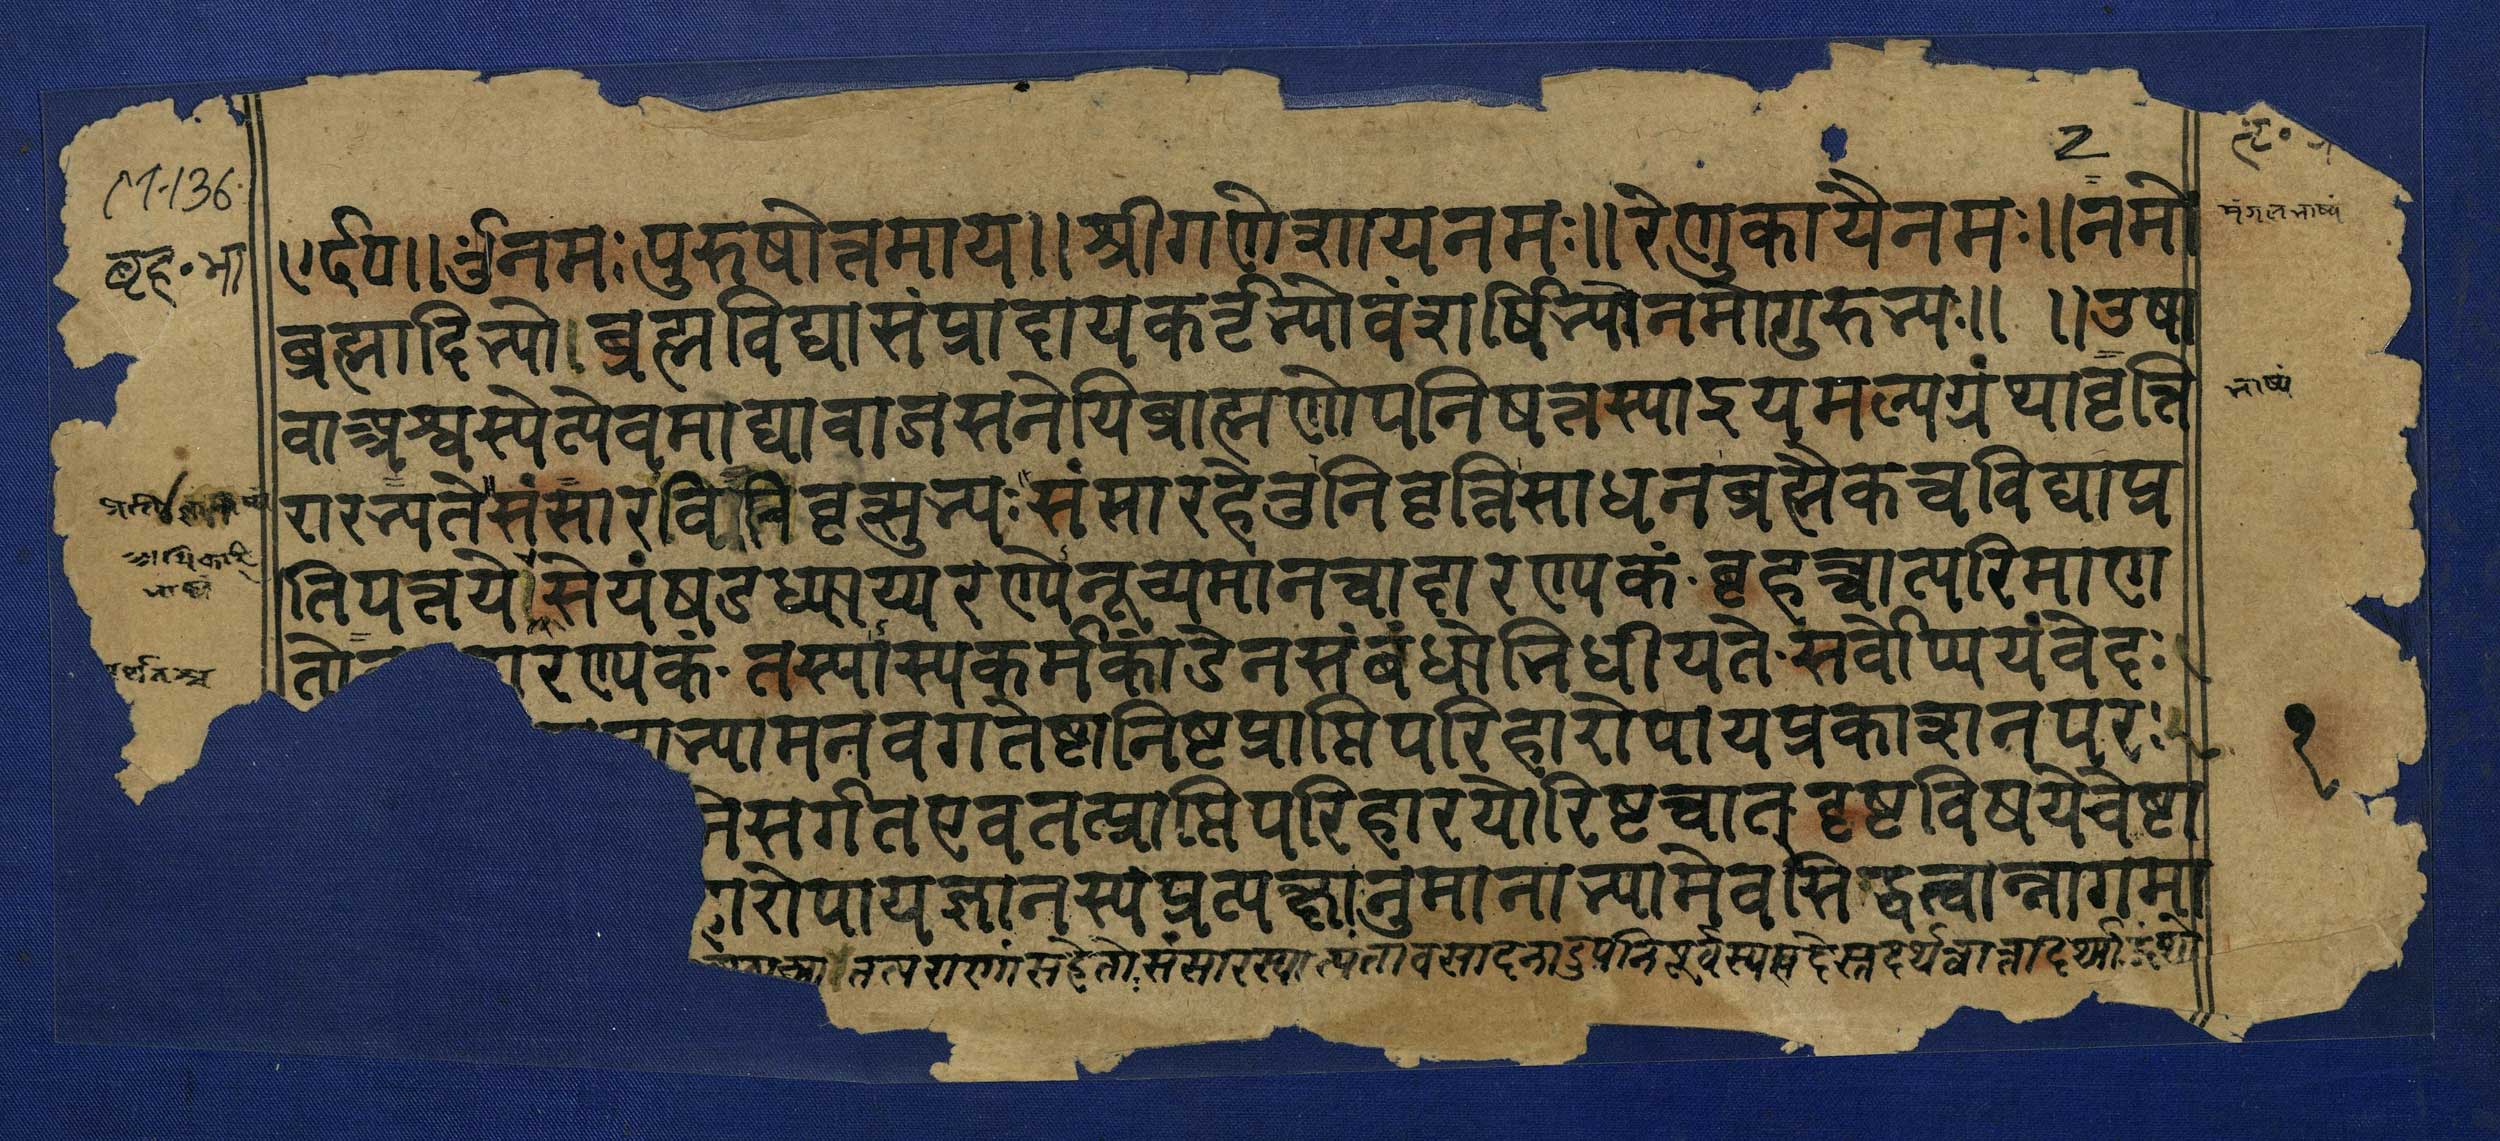 2
M-136
बृह॰भा
॥र्द०॥ ॐनमः पुरुषोत्तमाय॥श्रीगणेशायनमः॥रेणुकायैनमः॥नमो
ब्रह्मादिभ्यो ब्रह्मविद्यासंप्रादायकर्तृभ्योवंशर्षिभ्योनमोगुरुभ्यः॥ ॥उषा
वाअश्वस्येत्येवमाद्यावाजसनेयिब्राह्मणोपनिषत्तस्याइयमल्पग्रंथावृत्ति
रारभ्यतेसंसारविनिवृत्सुभ्यःसंसारहेतुनिवृत्तिसाधनब्रह्मैकत्वविद्याप्र
तिपत्तयेसेयंषडध्याय्यरण्येनूच्यमानत्वादारण्यकं॰बृहत्त्वात्परिमाण
तो रण्यकं॰तस्यास्यकर्मकांडेनसंबंधोभिधीयते॰सर्वोप्ययंवेदः
भ्यामनवगतेष्टानिष्टप्राप्तिपरिहारोपायप्रकाशनपरः
निसर्गतएवतत्प्राप्तिपरिहारयोरिष्टत्वात् दृष्टविषयेचेष्टा
रोपायज्ञानस्यप्रत्यक्षानुमानाभ्यामेवसिद्धत्वान्नागमा
तत्पराणांसहेतोःसंसारस्यात्यंतावसादनादुपनिपूर्वस्यसदेस्तदर्थत्वात्तादर्थ्याद्ग्रंथो
मंगलभाष्यं
भाष्यं
१